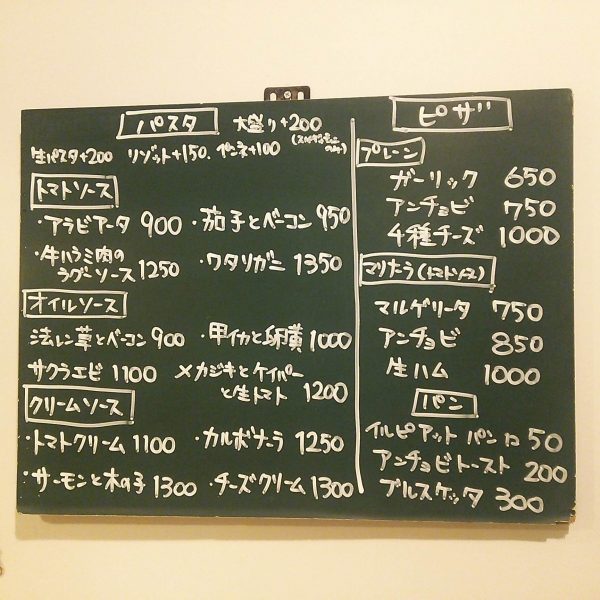 パスタ 大盛り+200
生パスタ+200 リゾット+150. ペンネ+100
トマトソース
・アラビアータ 900 ・茄子とベーコン 950
・牛ハラミ肉の
ラグーソース 1250 ・ワタリガニ 1350
オイルソース
法レン草とベーコン 900 ・甲イカと卵黄 1000
サクラエビ 1100 メカジキとケイパー
と生トマト 1200
クリームソース
・トマトクリーム 1100 ・カルボナーラ 1250
・サーモンと木の子 1300 ・チーズクリーム 1300
ピザ
プレーン
ガーリック 650
アンチョビ 750
4種チーズ 1000
マリナーラ(トマトソース)
マルゲリータ 750
アンチョビ 850
生ハム 1000
パン
イルピアット パン 50
アンチョビトースト 200
ブルスケッタ 300